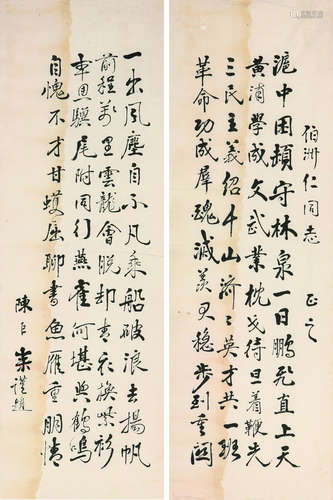 伯洲仁同志 正之
滬中困頓守林泉一日鵬飛直上天
黃浦學成文武業枕戈待旦着鞭先
三民主義紹千山濟〻英才共一班
革命功成群魂滅羨君穩步到重關
一出風塵自不凡乘船破浪去揚帆
前程萬里雲龍會脫却青衣換紫衫
車思驥尾附同行燕雀何堪與鶴鳴
自愧不才甘蠖屈聊書魚雁重朋情
陳臣 謹題